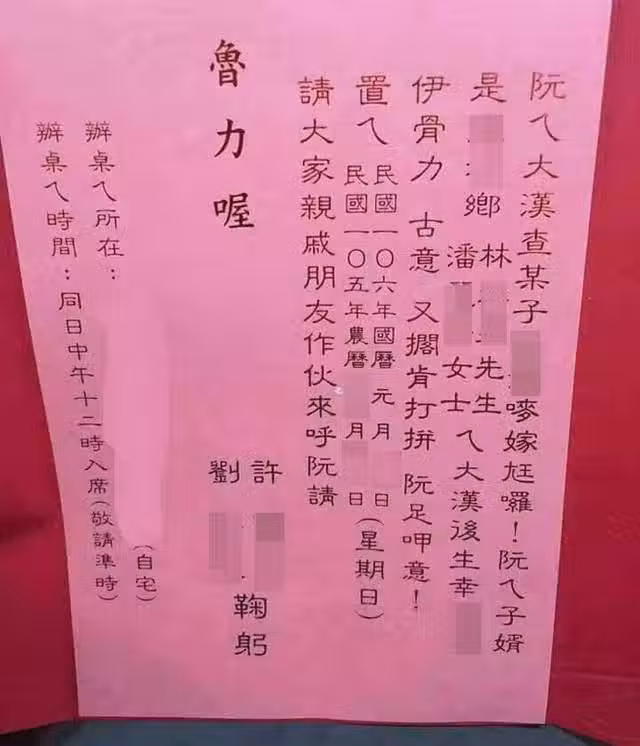 阮ㄟ大漢查某子 嘜嫁尪囉！阮ㄟ子婿
是 鄉
林 先生
潘 女士
ㄟ大漢後生幸
伊骨力 古意 又擱肯打拚 阮足呷意！
置ㄟ
民國一〇六年國曆 元月 日
民國一〇五年農曆 月 日
(星期日)
請大家親戚朋友作伙來呼阮請
魯力喔
許
劉
鞠躬
辦桌ㄟ所在： (自宅)
辦桌ㄟ時間：同日中午十二時入席(敬請準時)